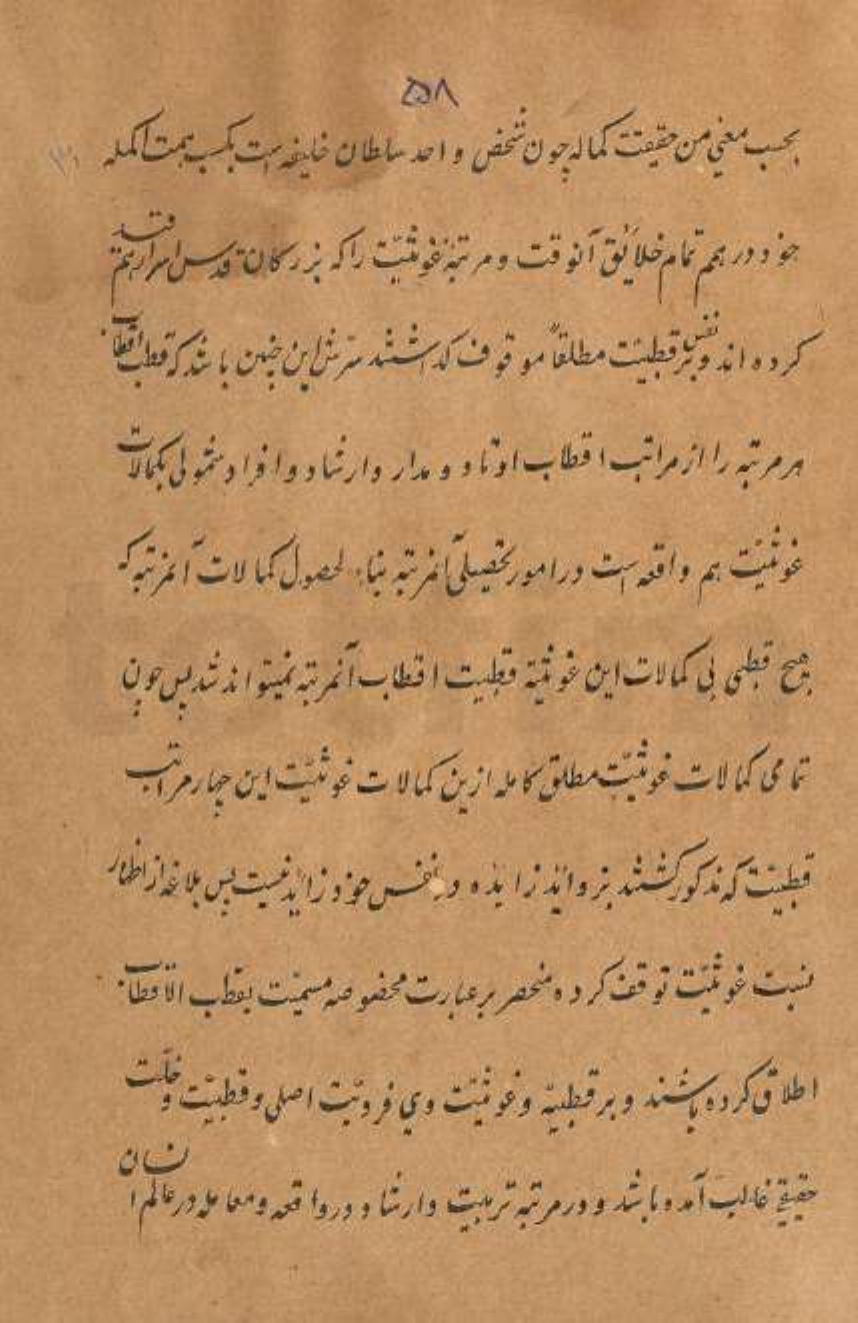 ۵۸
بحسب معنی من حقیقت کماله چون شخص واحد سلطان خلیفه است بکسب همت اکمله
خود در هم تمام خلائق آنوقت و مرتبهٔ غوثیّت را که بزرکان قدس اسرارهم
کرده اند و بر نفس قطبیّت مطلقاً موقوف کذاشتند سرّش این چنین باشد که قطب اقطاب
هر مرتبه را از مراتب اقطاب اوتاد و مدار و ارشاد و افراد شمولی بکمالات
غوثیّت هم واقعه است در امور تحصیلی آنمرتبه بناء لحصول کمالات آنمرتبه که
هیچ قطبی بی کمالات این غوثیّة قطبیت اقطاب آنمرتبه نمیتواند شد پس چون
تمامی کمالات غوثیّت مطلق کامله ازین کمالات غوثیّت این چهار مراتب
قطبیّت که مذکور کشتند بزوائد زایده در نفس خود زائد نیست پس بلاغه از اظهار
نسبت غوثیّت توقف کرده منحصر بر عبارت مخصوصه مسمیّت بقطب الاقطاب
اطلاق کرده باشند و بر قطبیّه و غوثیّت وی فردیّت اصلی و قطبیّت و خلّت
حقیقی غالب آمده باشد و در مرتبه تربیت و ارشاد و در واقعه و معامله در عالم انسان